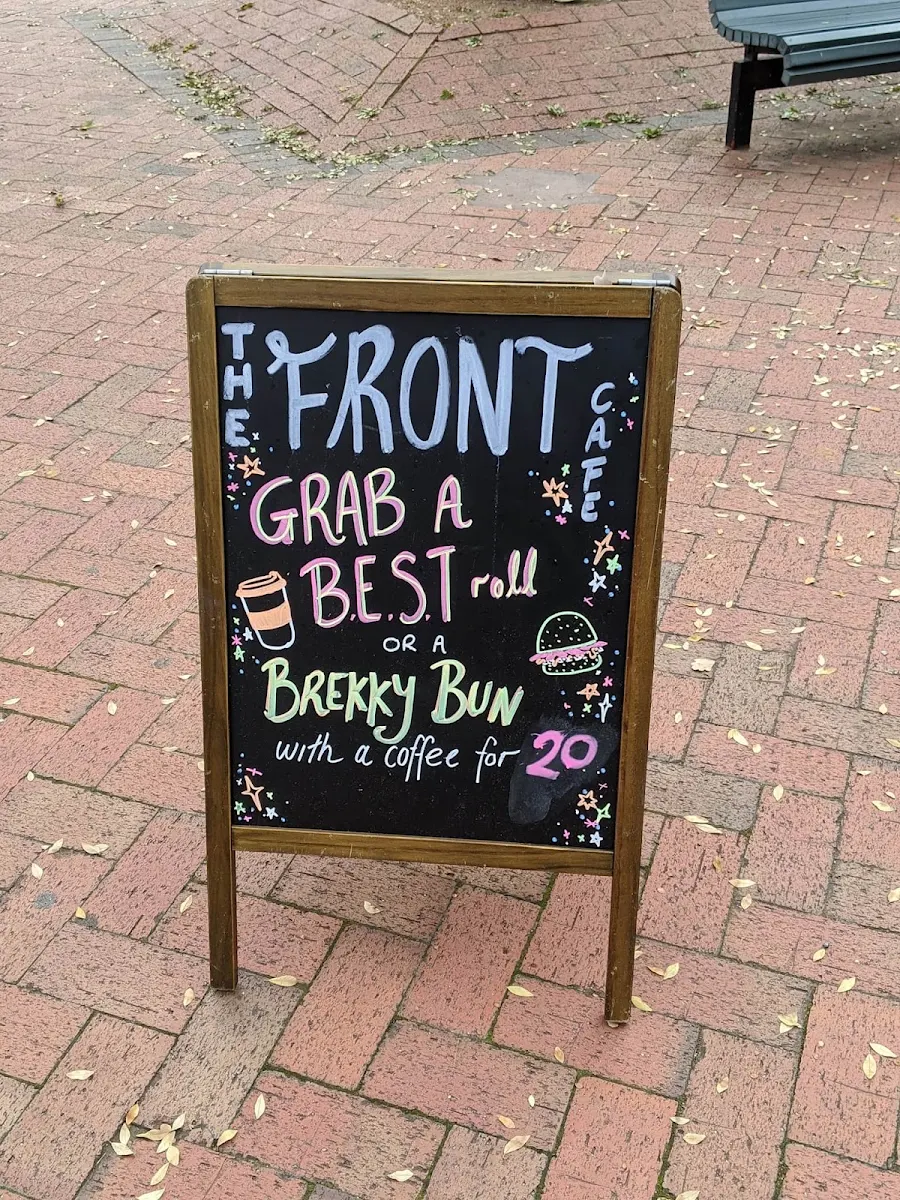 THE FRONT CAFE
GRAB A
B.E.S.T roll
OR A
BREKKY BUN
with a coffee for 20